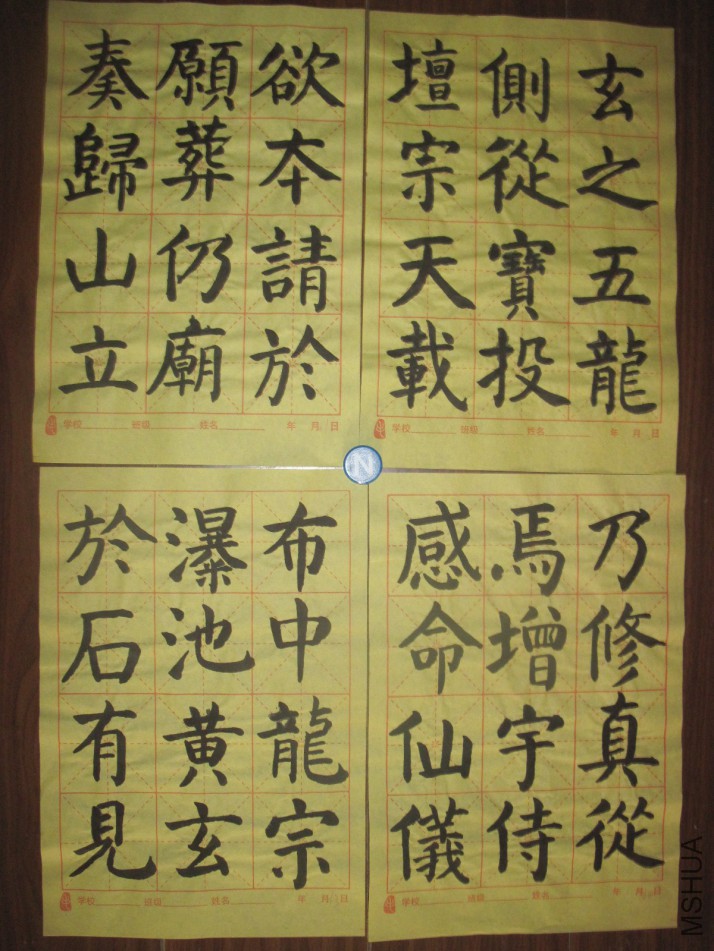 奏願欲
歸葬本
山仍請
立廟於
学校 班级 姓名 年 月 日
壇側玄
宗從之
天寶五
載投龍
学校 班级 姓名 年 月 日
N
於瀑布
石池中
有黃龍
見玄宗
学校 班级 姓名 年 月 日
感焉乃
命增修
仙宇真
儀侍從
学校 班级 姓名 年 月 日
MSHUA